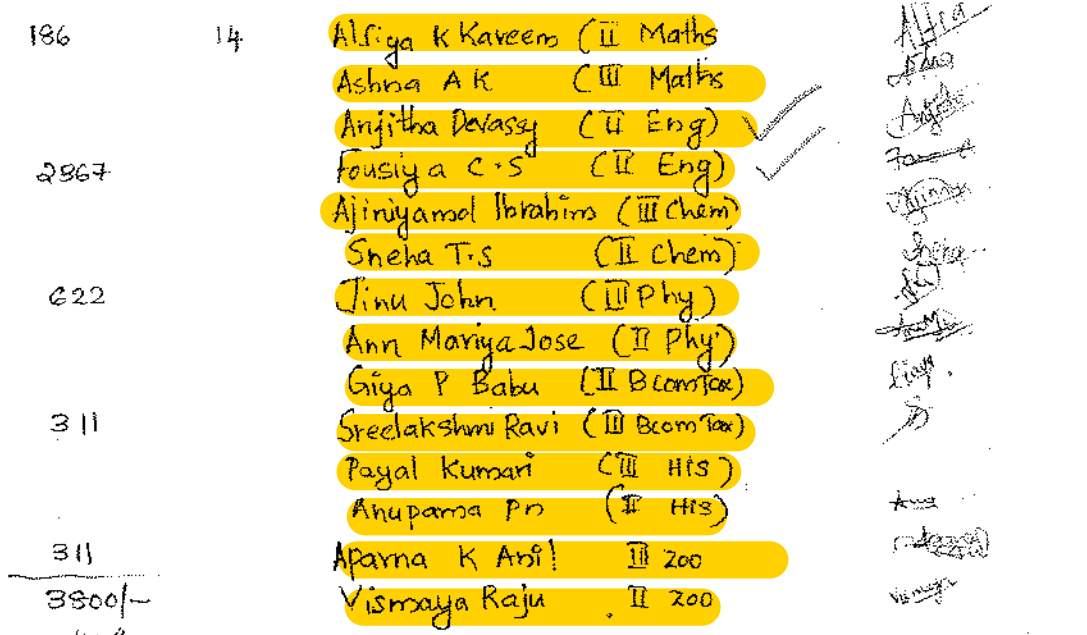 186 14 Alfiya K Kareem (II Maths Alfia
Ashna A K (III Maths
Anjitha Devassy (II Eng)
2367 Fousiya C.S (II Eng)
Ajiniyamol Ibrahim (III Chem)
Sneha T.S (II Chem) Sneha
622 Jinu John (III Phy)
Ann Mariya Jose (II Phy)
Giya P Babu (II BcomTax)
311 Sreelakshmi Ravi (III BcomTax)
Payal Kumari (III HIS)
Anuparna Pn (II HIS)
311 Aparna K Anil III zoo
3800/- Vismaya Raju II zoo Vismaya